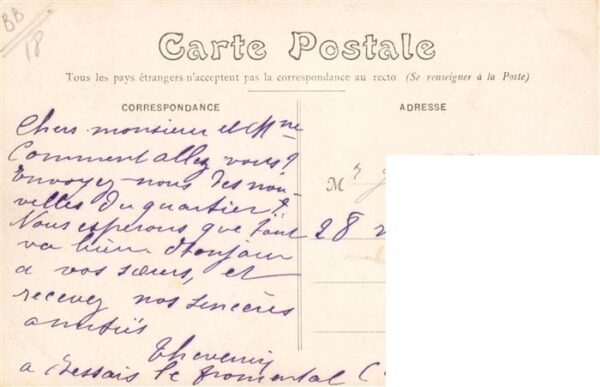 BB
18
Carte Postale
Tous les pays étrangers n'acceptent pas la correspondance au recto (Se renseigner à la Poste)
CORRESPONDANCE
Chers monsieur et Mme
Comment allez vous?
Envoyez-nous des nou-
velles du quartier?
Nous esperons que tout
va bien. bonjour
a vos sœurs, et
recevez nos sincères
amitiés
Thevenin
a Bessais le fromental C
ADRESSE
M
28